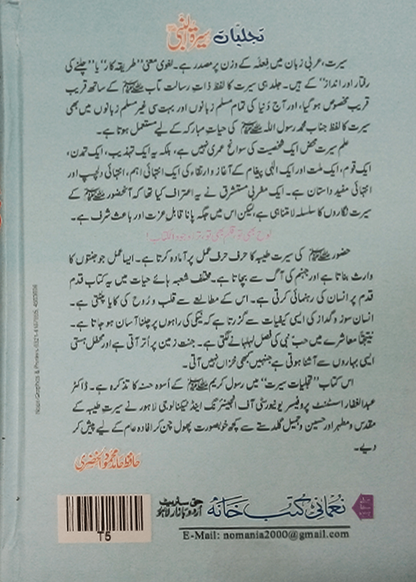 تجلیات سیرۃ النبی ﷺ
سیرت، عربی زبان میں فِعلۃ کے وزن پر مصدر ہے۔ لغوی معنی "طریقہ کار" یا "چلنے کی
رفتار اور انداز" کے ہیں۔ جلد ہی سیرت کا لفظ ذاتِ رسالت مآب ﷺ کے ساتھ قریب
قریب مخصوص ہو گیا، اور آج دُنیا کی تمام مسلم زبانوں اور بہت سی غیر مسلم زبانوں میں بھی
سیرت کا لفظ جناب محمد رسول اللہ ﷺ کی حیاتِ مبارکہ کے لیے مستعمل ہوتا ہے۔
علم سیرت محض ایک شخصیت کی سوانح عمری نہیں ہے، بلکہ یہ ایک تہذیب، ایک تمدن،
ایک قوم، ایک ملت اور ایک الٰہی پیغام کے آغاز و ارتقاء کی ایک انتہائی اہم، انتہائی دلچسپ اور
انتہائی مفید داستان ہے۔ ایک مغربی مستشرق نے یہ اعتراف کیا تھا کہ آنحضور ﷺ کے
سیرت نگاروں کا سلسلہ لامتناہی ہے، لیکن اس میں جگہ پانا قابل عزت اور باعث شرف ہے۔
لوح بھی تو، قلم بھی تو، تیرا وجود الکتاب!
حضور ﷺ کی سیرت طیبہ کا حرف حرف عمل پر آمادہ کرتا ہے۔ ایسا عمل جو جنتوں کا
وارث بناتا ہے اور جہنم کی آگ سے بچاتا ہے۔ مختلف شعبہ ہائے حیات میں یہ کتاب قدم
قدم پر انسان کی رہنمائی کرتی ہے۔ اس کے مطالعے سے قلب و رُوح کی کایا پلٹتی ہے۔
انسان سوز و گداز کی ایسی کیفیات سے گزرتا ہے کہ نیکی کی راہوں پر چلنا آسان ہو جاتا ہے۔
نتیجتاً معاشرے میں حب نبی کی فصل لہلہانے لگتی ہے۔ جنت زمین پر اُتر آتی ہے اور محفل ہستی
ایسی بہاروں سے آشنا ہوتی ہے جنہیں کبھی خزاں نہیں آتی۔
اس کتاب "تجلیات سیرت" میں رسول کریم ﷺ کے اُسوہ حسنہ کا تذکرہ ہے۔ ڈاکٹر
عبدالغفار اسسٹنٹ پروفیسر یونیورسٹی آف انجینئرنگ اینڈ ٹیکنالوجی لاہور نے سیرت طیبہ کے
مقدس و مطہر اور حسین و جمیل گلدستے سے کچھ خوبصورت پھول چن کر افادہ عام کے لیے پیش کر
دیے۔
حافظ حامد محمود الخضری
T5
نعمانی کتب خانہ
حق سٹریٹ
اُردو بازار لاہور
E-Mail: nomania2000@gmail.com